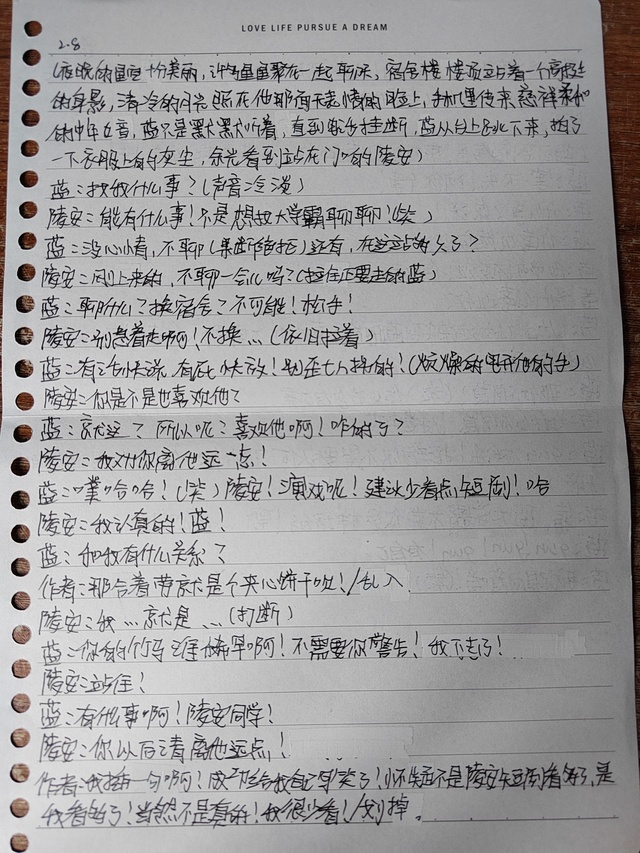 LOVE LIFE PURSUE A DREAM
2.8
(夜晚的星空十分美丽，许多星星聚在一起聊天，宿舍楼楼顶立着一个高挑
的身影，清冷的月光照在他那面无表情的脸上，手机里传来慈祥柔和
的中年女音，蓝只是默默听着，直到电话挂断，蓝从台上跳下来，拍了
一下衣服上的灰尘，余光看到站在门口的陵安)
蓝：找我什么事？(声音冷淡)
陵安：能有什么事！只是想找大学霸聊聊！(笑)
蓝：没心情，不聊(果断拒绝)还有，在这站多久了？
陵安：刚上来的，不聊一会儿吗？(拉住正要走的蓝)
蓝：聊什么？换宿舍？不可能！松手！
陵安：别急着走啊！不换…(依旧拉着)
蓝：有话快说，有屁快放！别歪七八扭的！(烦燥的甩开他的手)
陵安：你是不是也喜欢他？
蓝：就这？所以呢？喜欢他啊！咋的了？
陵安：我劝你离他远一点！
蓝：噗哈哈！(笑)陵安！演戏呢！建议少看点短剧！哈
陵安：我认真的！蓝！
蓝：和我有什么关系？
作者：那合着蓝就是个夹心饼干呗！/乱入
陵安：我…就是…(打断)
蓝：你的竹马谁稀罕啊！不需要你警告！我下去了！
陵安：站住！
蓝：有何事啊！陵安同学！
陵安：你以后请离他远点！
作者：我插一句啊！成功给我自己写笑了！小怀疑不是陵安短剧看多了，是
我看多了！当然不是真的！我很少看！/划掉.